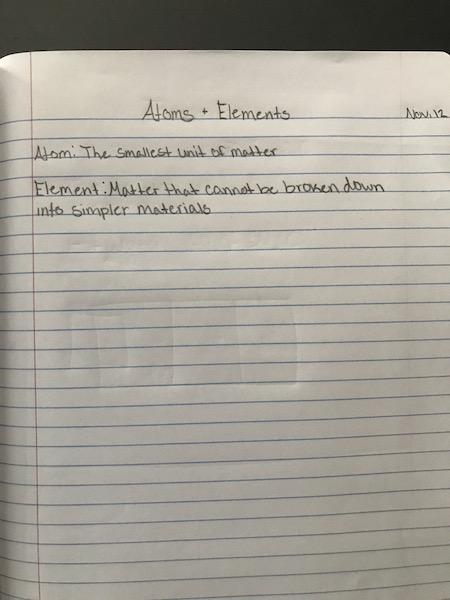 Atoms + Elements
Nov. 12
Atom: The smallest unit of matter
Element: Matter that cannot be broken down
into simpler materials